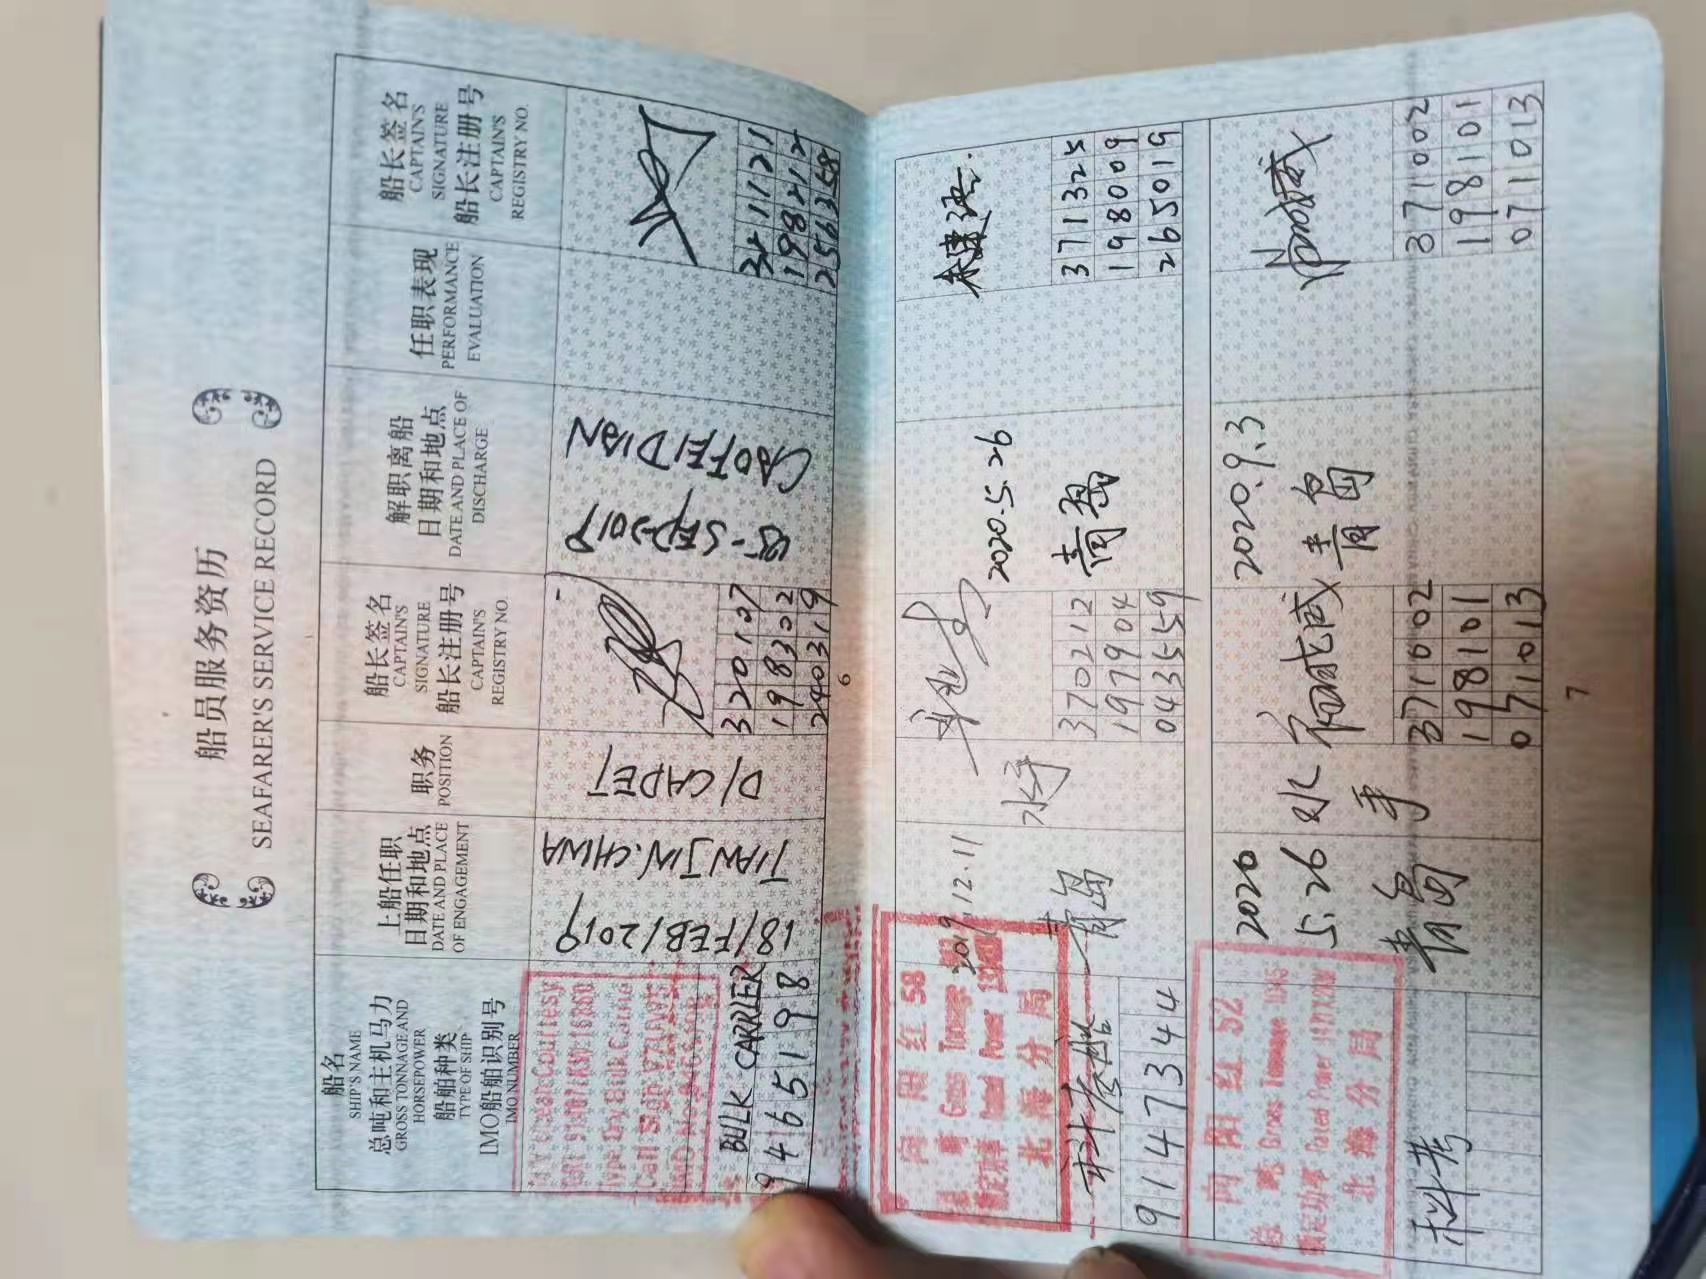 船员服务资历
SEAFARER'S SERVICE RECORD
船名
SHIP'S NAME
总吨和主机马力
GROSS TONNAGE AND
HORSEPOWER
船舶种类
TYPE OF SHIP
IMO船舶识别号
IMO NUMBER
上船任职
日期和地点
DATE AND PLACE
OF ENGAGEMENT
职务
POSITION
船长签名
CAPTAIN'S
SIGNATURE
船长注册号
CAPTAIN'S
REGISTRY NO.
解职离船
日期和地点
DATE AND PLACE OF
DISCHARGE
任职表现
PERFORMANCE
EVALUATION
船长签名
CAPTAIN'S
SIGNATURE
船长注册号
CAPTAIN'S
REGISTRY NO.
BULK CARRIER
9465198
18/FEB/2019
TIANJIN.CHINA
D/CADET
320107
198302
240319
SEP-2019
CAOFEIDIAN
6
向阳红 58
北海分局
科考船
9147344
2019.12.11
青岛
水手
370212
197904
043559
2020.5.26
青岛
371325
198009
265019
向阳红 52
总吨 Gross Tonnage
额定功率 Rated Power
北海分局
科考
2020
5.26
青岛
水
手
371002
198101
071013
2020.9.3
青岛
371002
198101
071013
7